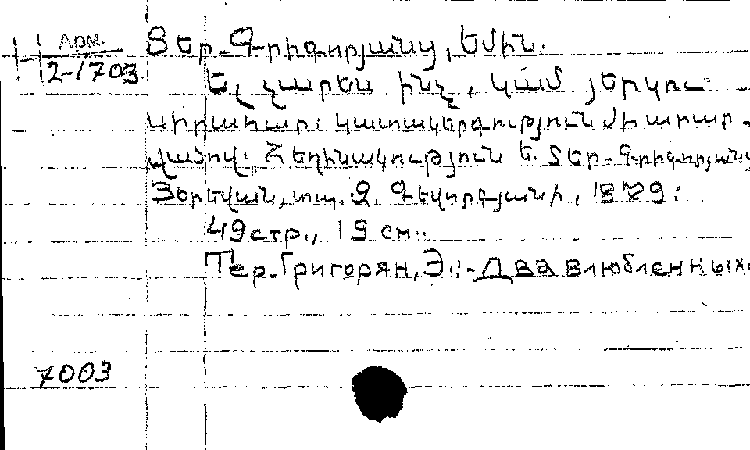 Арм.
2-1703
Տեր-Գրիգորյանց, Եմին.
Էլ չարես ինչ, կամ յերկու
սիրահար: Կատակերգություն մի արար-
վածով: Հեղինակություն Ե. Տեր-Գրիգորյանց
Յերեվան, տպ. Զ. Գեվորգյանի, 1879:
49 стр., 19 см.
Тер-Григорян, Э.:- Два влюбленных.
7003